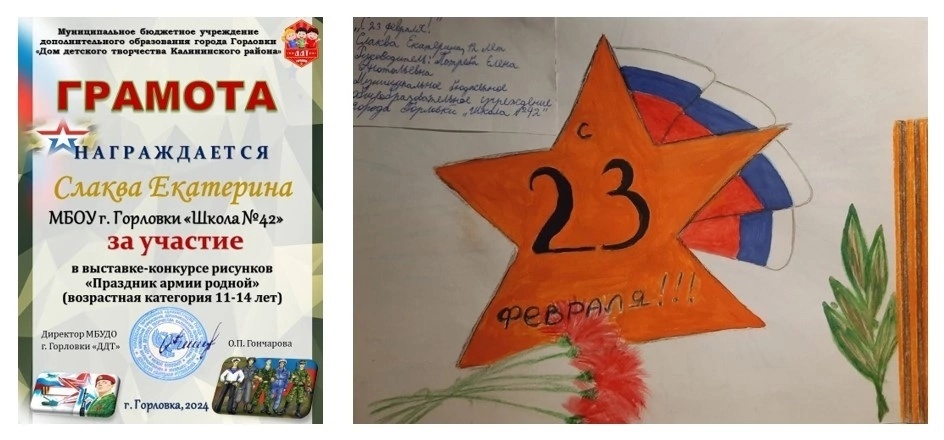 Муниципальное бюджетное учреждение
дополнительного образования города Горловки
«Дом детского творчества Калининского района»
ДДТ
ГРАМОТА
НАГРАЖДАЕТСЯ
Слаква Екатерина
МБОУ г. Горловки «Школа №42»
за участие
в выставке-конкурсе рисунков
«Праздник армии родной»
(возрастная категория 11-14 лет)
Директор МБУДО
г. Горловки «ДДТ»
О.П. Гончарова
г. Горловка, 2024
"23 февраля!"
Слаква Екатерина, 12 лет
Руководитель: Елена
Анатольевна
Муниципальное бюджетное
общеобразовательное учреждение
города Горловки "Школа №42"
С
23
ФЕВРАЛЯ!!!